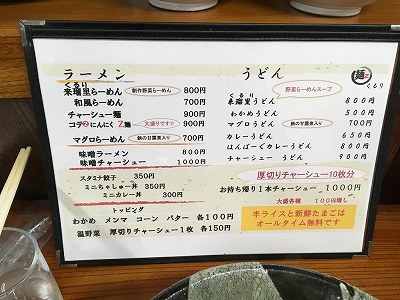 ラーメン
くるり
来瑠里らーめん 創作野菜らーめん 800円
和風らーめん 700円
チャーシュー麺 900円
コテ②にんにくZ麺 大盛りです!! 900円
マグロらーめん 鮪の甘露煮入り 700円
味噌ラーメン 800円
味噌チャーシュー 1000円
スタミナ餃子 350円
ミニちゃしゅー丼 350円
ミニカレー丼 300円
トッピング
わかめ メンマ コーン バター 各100円
温野菜 厚切りチャーシュー1枚 各150円
うどん
麺
くるり
野菜らーめんスープ
くるり
来瑠里うどん 800円
わかめうどん 500円
マグロうどん 鮪の甘露煮入り 700円
カレーうどん 650円
はんばーぐカレーうどん 800円
チャーシューうどん 900円
厚切りチャーシュー10枚分
お持ち帰り1本チャーシュー 1000円
大盛各種 100円増し
半ライスと新鮮たまごは
オールタイム無料です